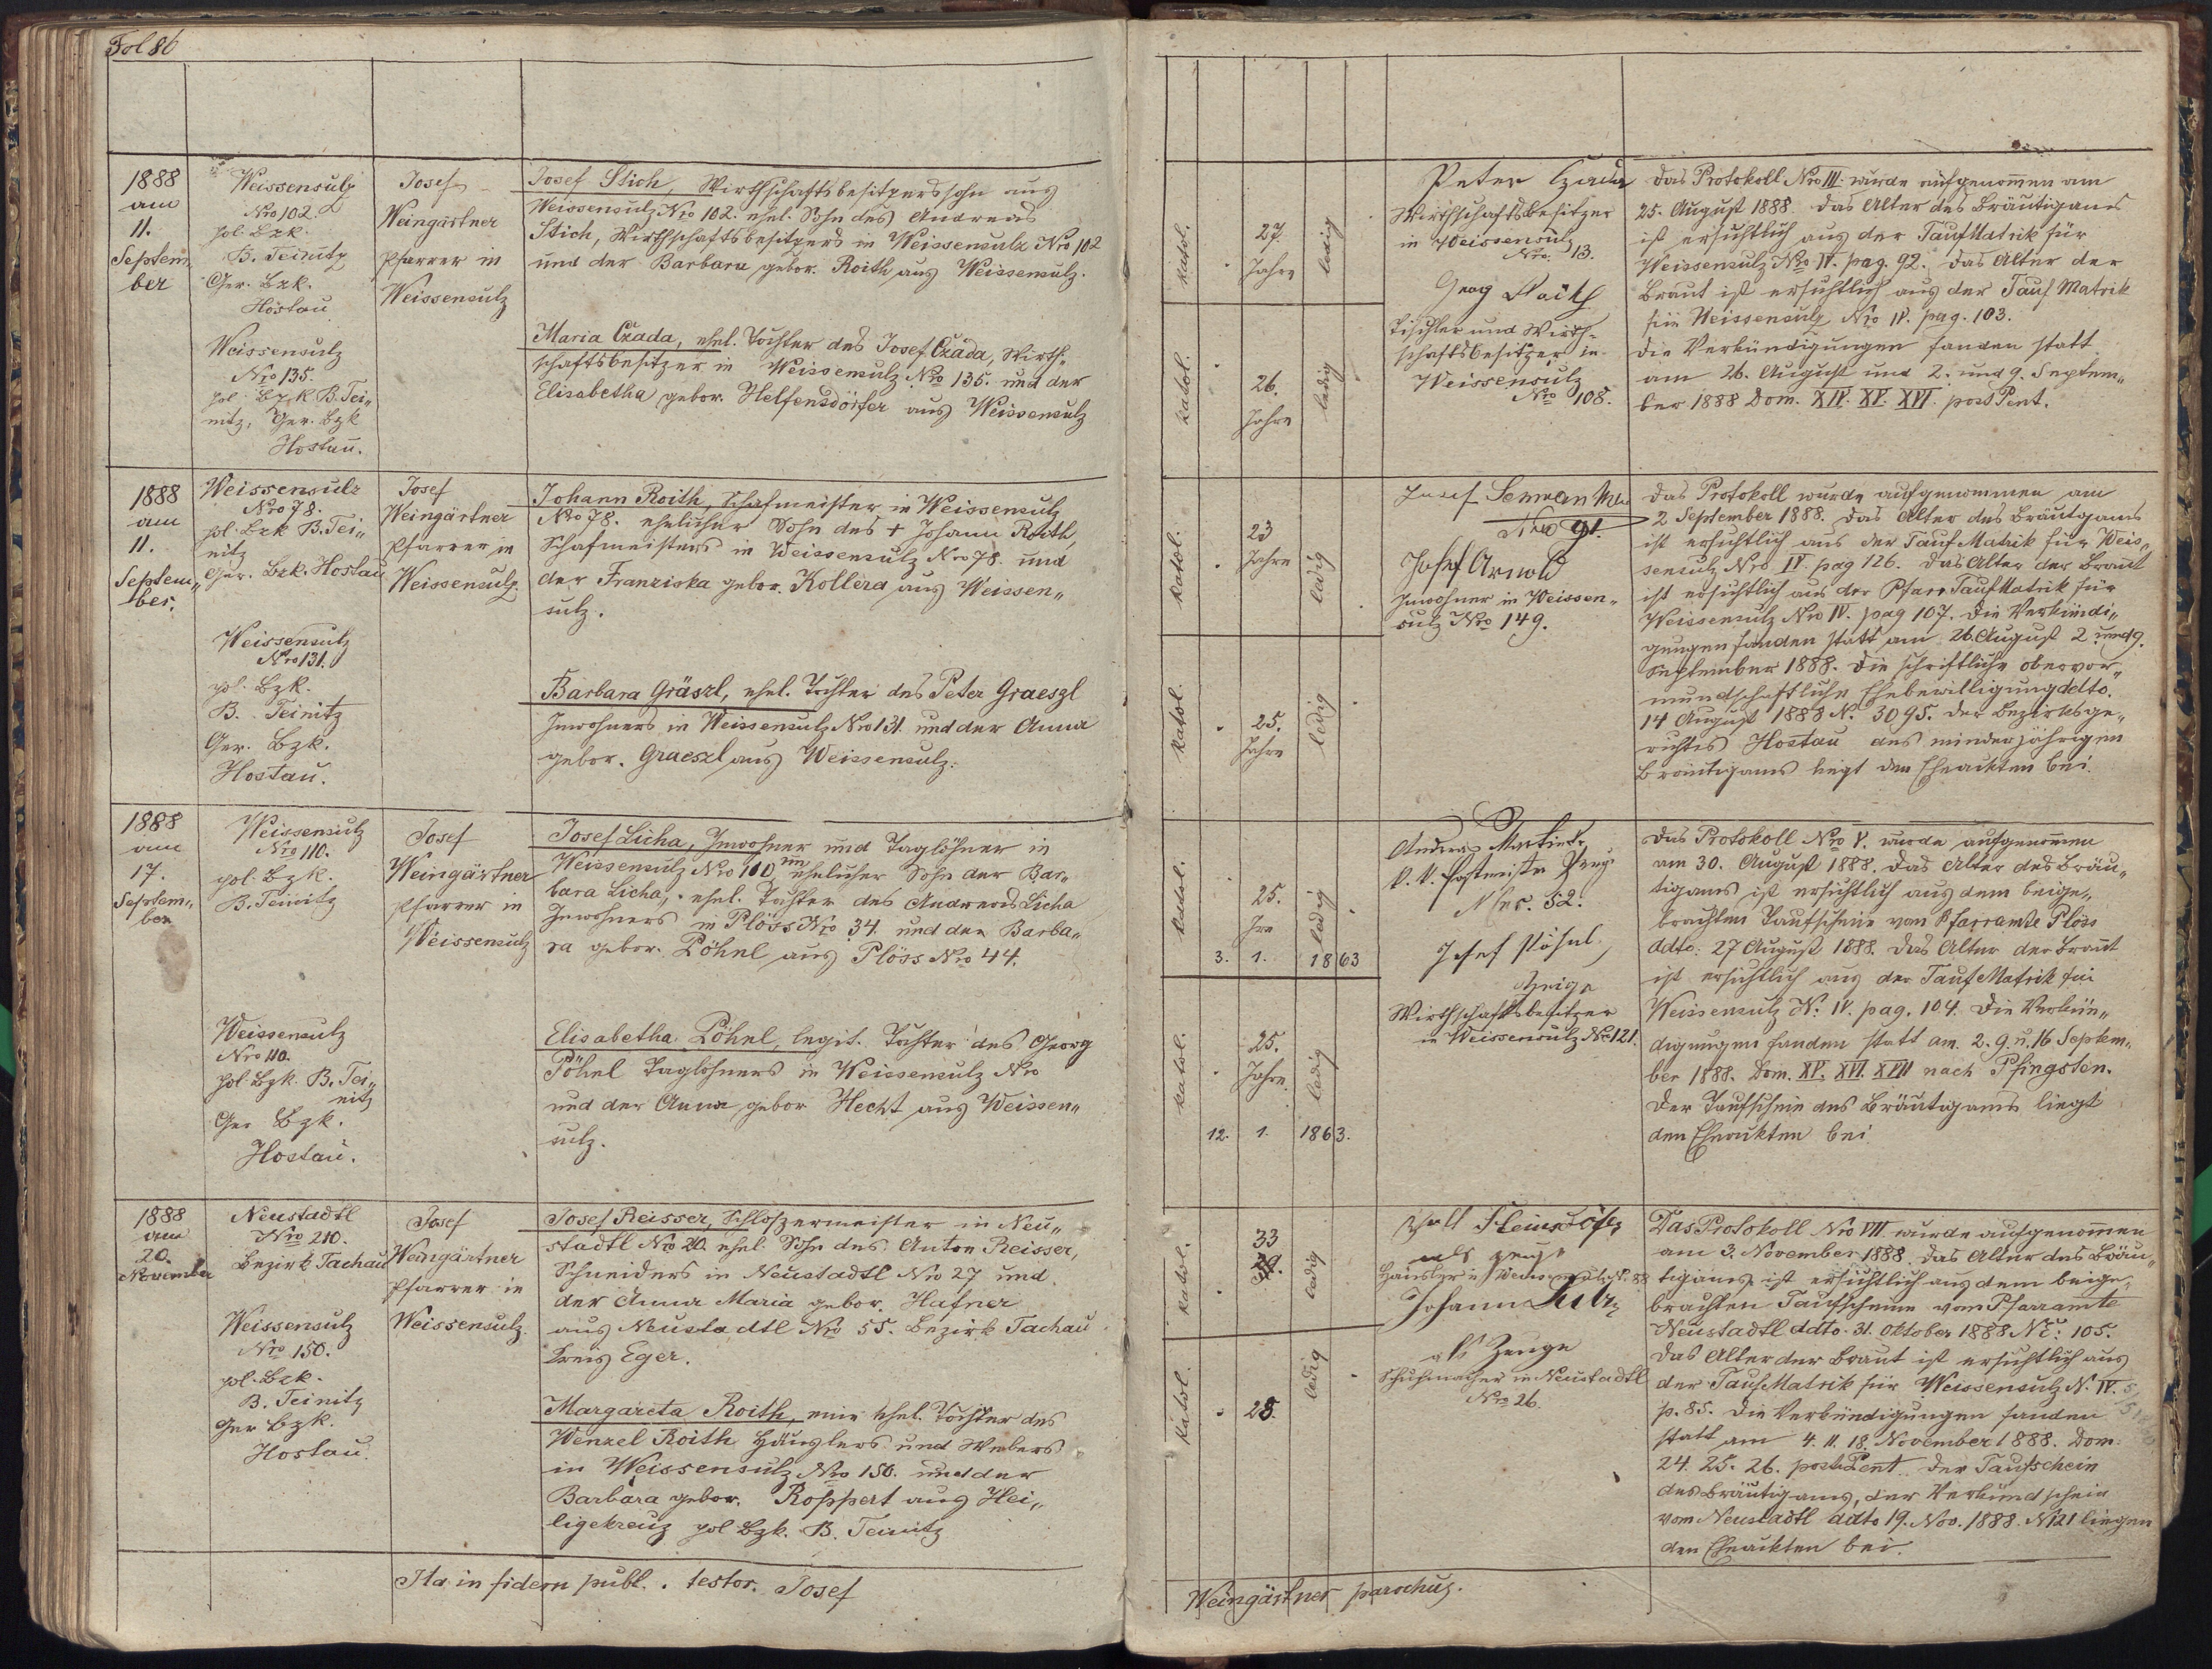 Fol 86
1888
am
11.
Septem
ber
Weissensulz
Nro 102.
pol. Bzk.
B. Teinitz
Ger. Bzk.
Hostau
Weissensulz
Nro 135.
pol. Bzk B. Tei„
nitz, Ger. Bzk
Hostau.
Josef
Weingärtner
Pfarrer in
Weissensulz
Josef Stich, Wirthschaftsbesitzerssohn aus
Weissensulz Nro 102. ehel. Sohn des Andreas
Stich, Wirthschaftsbesitzers in Weissensulz Nro 102
und der Barbara, gebor. Roith aus Weissensulz.
Maria Čzada, ehel. Tochter des Josef Čzada, Wirth„
schaftsbesitzer in Weissensulz Nro 135. und der
Elisabetha gebor. Helfensdörfer aus Weissensulz
katol.
27.
Jahre
ledig
katol.
26.
Jahre
ledig
Peter Czada
Wirthschaftsbesitzer
in Weissensulz
Nro. 13.
Georg Roith
Tischler und Wirth„
schaftsbesitzer in
Weissensulz
Nro 108.
Das Protokoll Nro III. wurde aufgenommen am
25. August 1888. Das Alter des Bräutigams
ist ersichtlich aus der Taufmatrik für
Weissensulz Nro IV. pag. 92. Das Alter der
Braut ist ersichtlich aus der Tauf Matrik
für Weissensulz Nro IV. pag. 103.
Die Verkündigungen fanden statt
am 26. August und 2. und 9. Septem„
ber 1888 Dom. XIV. XV. XVI. post Pent.
1888
am
11.
Septem„
ber.
Weissensulz
Nro 78.
pol. Bzk B. Tei„
nitz
Ger. Bzk. Hostau
Weissensulz
Nro 131.
pol. Bzk.
B. Teinitz
Ger. Bzk.
Hostau.
Josef
Weingärtner
Pfarrer in
Weissensulz.
Johann Roith, Schafmeister in Weissensulz
Nro 78. ehelicher Sohn des + Johann Roith,
Schafmeisters in Weissensulz Nro 78. und
der Franziska gebor. Kollera aus Weissen„
sulz.
Barbara Gräszl, ehel. Tochter des Peter Graeszl
Inwohners in Weissensulz Nro 131 und der Anna
gebor. Graeszl aus Weissensulz.
katol.
23
Jahre
ledig
katol.
25.
Jahre
ledig
Josef
Nro 91.
Josef Arnold
Inwohner in Weissen„
sulz Nro 149.
Das Protokoll wurde aufgenommen am
2 September 1888. Das Alter des Bräutigams
ist ersichtlich aus der Tauf Matrik für Weis„
sensulz Nro IV. pag 126. Das Alter der Braut
ist ersichtlich aus der Pfarr Tauf Matrik für
Weissensulz Nro IV. pag 107. Die Verkündi„
gungen fanden statt am 26. August 2. und 9.
September 1888. Die schriftliche obervor„
mundschaftliche Ehebewilligung ddto.
14 August 1888 N. 3095. des Bezirksge„
richtes Hostau des minderjährigen
Bräutigams liegt den Eheackten bei.
1888
am
17.
Septem„
ber
Weissensulz
Nro 110.
pol. Bzk.
B. Teinitz
Weissensulz
Nro 110.
pol. Bzk. B. Tei„
nitz
Ger Bzk.
Hostau.
Josef
Weingärtner
Pfarrer in
Weissensulz
Josef Licha, Inwohner und Taglöhner in
Weissensulz Nro 110 un ehelicher Sohn der Bar„
bara Licha, ehel. Tochter des Andreas Licha
Inwohners in Plöss Nro 34. und der Barba„
ra gebor. Pöhnl aus Plöss Nro 44.
Elisabetha Pöhnl, legit. Tochter des Georg
Pöhnl Taglöhners in Weissensulz Nro
und der Anna gebor Hecht aus Weissen„
sulz.
katol.
25.
Jre
ledig
3. 1. 1863
katol.
25.
Jahre.
ledig
12. 1. 1863.
Andreas Martinek
k. k. Postmeister Zeug
Nro. 52.
Josef Pöhnl
Zeige
Wirthschaftsbesitzer
in Weissensulz Nro 121.
Das Protokoll Nro V. wurde aufgenommen
am 30. August 1888. Das Alter des Bräu„
tigams ist ersichtlich aus dem beige„
brachten Taufschein vom Pfarramte Plöss
ddto: 27 August 1888. Das Alter der Braut
ist ersichtlich aus der Tauf Matrik für
Weissensulz N: IV. pag. 104. Die Verkün„
digungen fanden statt am. 2. 9. u. 16 Septem„
ber 1888. Dom. XV. XVI. XVII nach Pfingsten.
Der Taufschein des Bräutigams liegt
den Eheackten bei.
1888
am
20.
November
Neustadtl
Nro 210.
Bezirk Tachau
Weissensulz
Nro 150.
pol. Bzk.
B. Teinitz
Ger Bzk.
Hostau.
Josef
Weingärtner
Pfarrer in
Weissensulz.
Josef Reisser, Schlossermeister in Neu„
stadtl Nro 20. ehel. Sohn des Anton Reisser,
Schneiders in Neustadtl Nro 27 und
der Anna Maria gebor. Hafner
aus Neustadtl Nro 55. Bezirk Tachau
Kreis Eger.
Margareta Roith, eine ehel. Tochter des
Wenzel Roith Häuslers und Webers
in Weissensulz Nro 150. und der
Barbara gebor. Roppert aus Hei„
ligekreuz pol Bzk. B. Teinitz
katol.
33
ledig
katol.
28.
ledig
als Zeuge
Häusler in Weissensulz N. 88
Johann
als Zeuge
Schuhmacher in Neustadtl
Nro 26.
Das Protokoll Nro VIII wurde aufgenommen
am 3. November 1888. Das Alter des Bräu„
tigams ist ersichtlich aus dem beige„
brachten Taufscheine vom Pfarramte
Neustadtl ddto. 31. Oktober 1888 Nro: 105.
Das Alter der Braut ist ersichtlich aus
der Tauf Matrik für Weissensulz N. IV.
p. 85. Die Verkündigungen fanden
statt am 4. 11. 18. November 1888. Dom:
24. 25. 26. post Pent. Der Taufschein
des Bräutigams, der Verkündschein
vom Neustadtl ddto 19. Nov. 1888. N 121 liegen
den Eheackten bei.
Ita in fidem publ. testor. Josef
Weingärtner parochus.